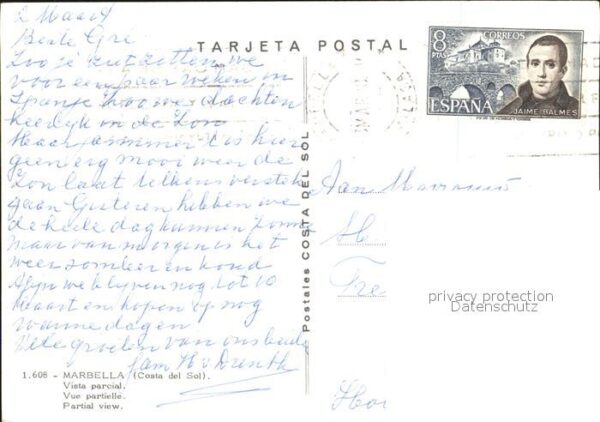 2 Maart
Beste Gré
Zoo je ziet zitten we
voor een paar weken in
Spanje hoo we dachten
heerlijk in de Zon
Maar jammer is hier
geen erg mooi weer de
Zon laat telkens verstek
gaan Gisteren hebben we
de heele dag kunnen zonnen
Maar van morgen is het
weer somber en koud
Afijn we blijven nog tot 10
Maart en hopen op nog
warme dagen
Vele groeten van ons beide
fam H v Drenth
1.608 - MARBELLA (Costa del Sol).
Vista parcial.
Vue partielle.
Partial view.
TARJETA POSTAL
Postales COSTA DEL SOL
8 PTAS
CORREOS
ESPAÑA
JAIME BALMES
Aan
H
Fre
privacy protection
Datenschutz
Ho